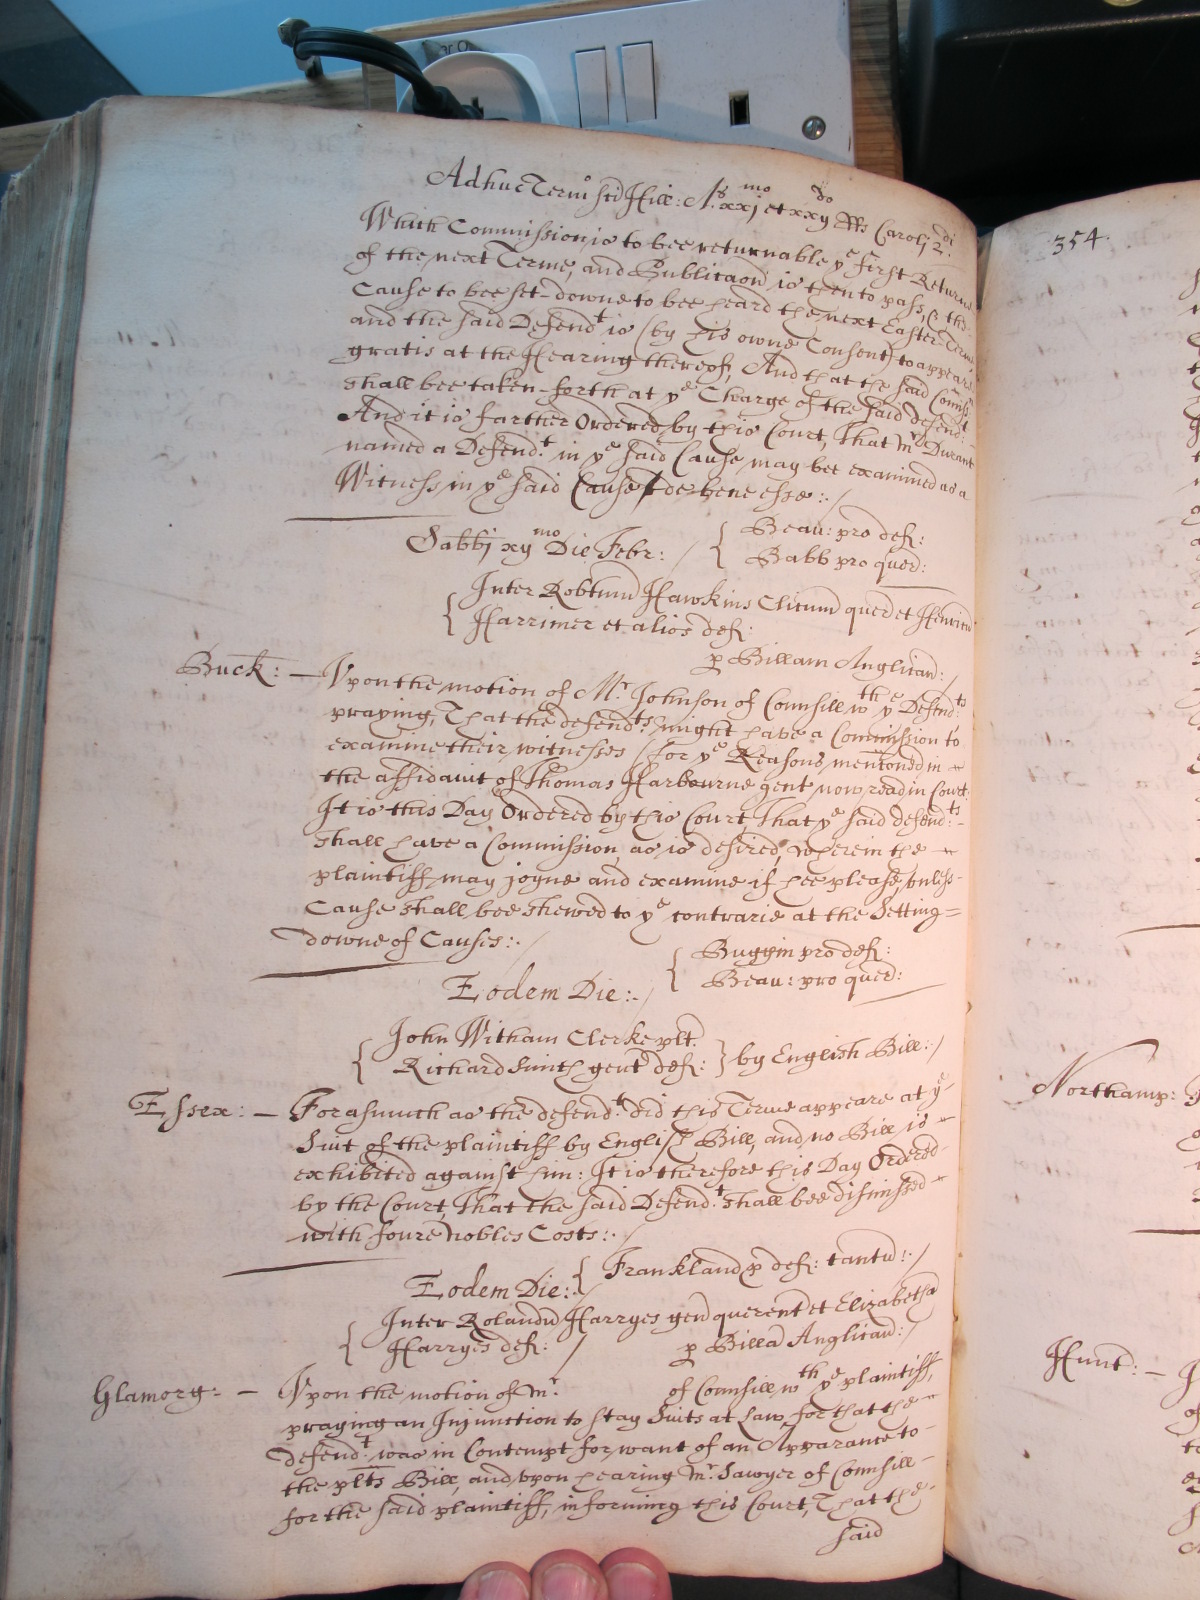 Adhuc Termi Sci Hill: As. xxjmo et xxijdo RRs Caroli 2di.
Which Commission is to bee returnable ye first Returne
of the next Terme, and Publicacon is then to pass, & the
Cause to bee set-downe to bee heard the next Easter-Terme,
and the said Defendt is (by his owne Consent) to appeare
gratis at the Hearing thereof, And that the said Comiss:n
shall bee taken-forth at ye Charge of the said defend:t
And it is farther Ordered by this Court, That mr Durant
named a Defend:t in ye said Cause may bee examined as a
Witness in ye said Cause de bene esse:./
Sabbj xijmo Die Febr: / { Beau: pro def:
Babb pro quer:
{ Inter Robtum Hawkins Clicum quer et Henricu
Harrimer et alios def:
p Billam Anglican: /
Buck: — Vpon the motion of Mr. Johnson of Counsill wth ye Defend:ts
praying, That the defend:ts might have a Commission to
examine their witnesses (for ye Reasons mentoned in
the affidavit of Thomas Harbourne gent now read in Court:
It is this Day Ordered by this Court, That ye said defend:ts
shall have a Commission, as is desired, wherein the
plaintiff may joyne and examine if hee please, vnless-
Cause shall bee shewed to ye contrarie at the Setting=
downe of Causes:. /
Eodem Die:. / { Buggin pro def:
Beau: pro quer:
{ John Witham Clerke plt.
Richard Smith gent def: } by English Bill: /
Essex: — Forasmuch as the defend:t did this Terme appeare at ye
Suit of the plaintiff by English Bill, and no Bill is
exhibited against him: It is therefore this Day Ordered-
by the Court, That the said Defend:t shall bee dismissed
with foure Nobles Costs:.
Eodem Die: { Frankland p def: tantu:. /
{ Inter Rolandu Harryes gen querent et Elizabetha
Harryes def: / p Billa Anglican: /
Glamorg: — Vpon the motion of mr. of Counsill wth ye plaintiff,
praying an Injunction to stay Suits at Law, for that the
defend:t was in Contempt for want of an Apparance to-
the plts Bill, and vpon hearing mr. Sawyer of Counsill-
for the said plaintiff, informing this Court, That the
said
354.
Northamp:
Hunt: —